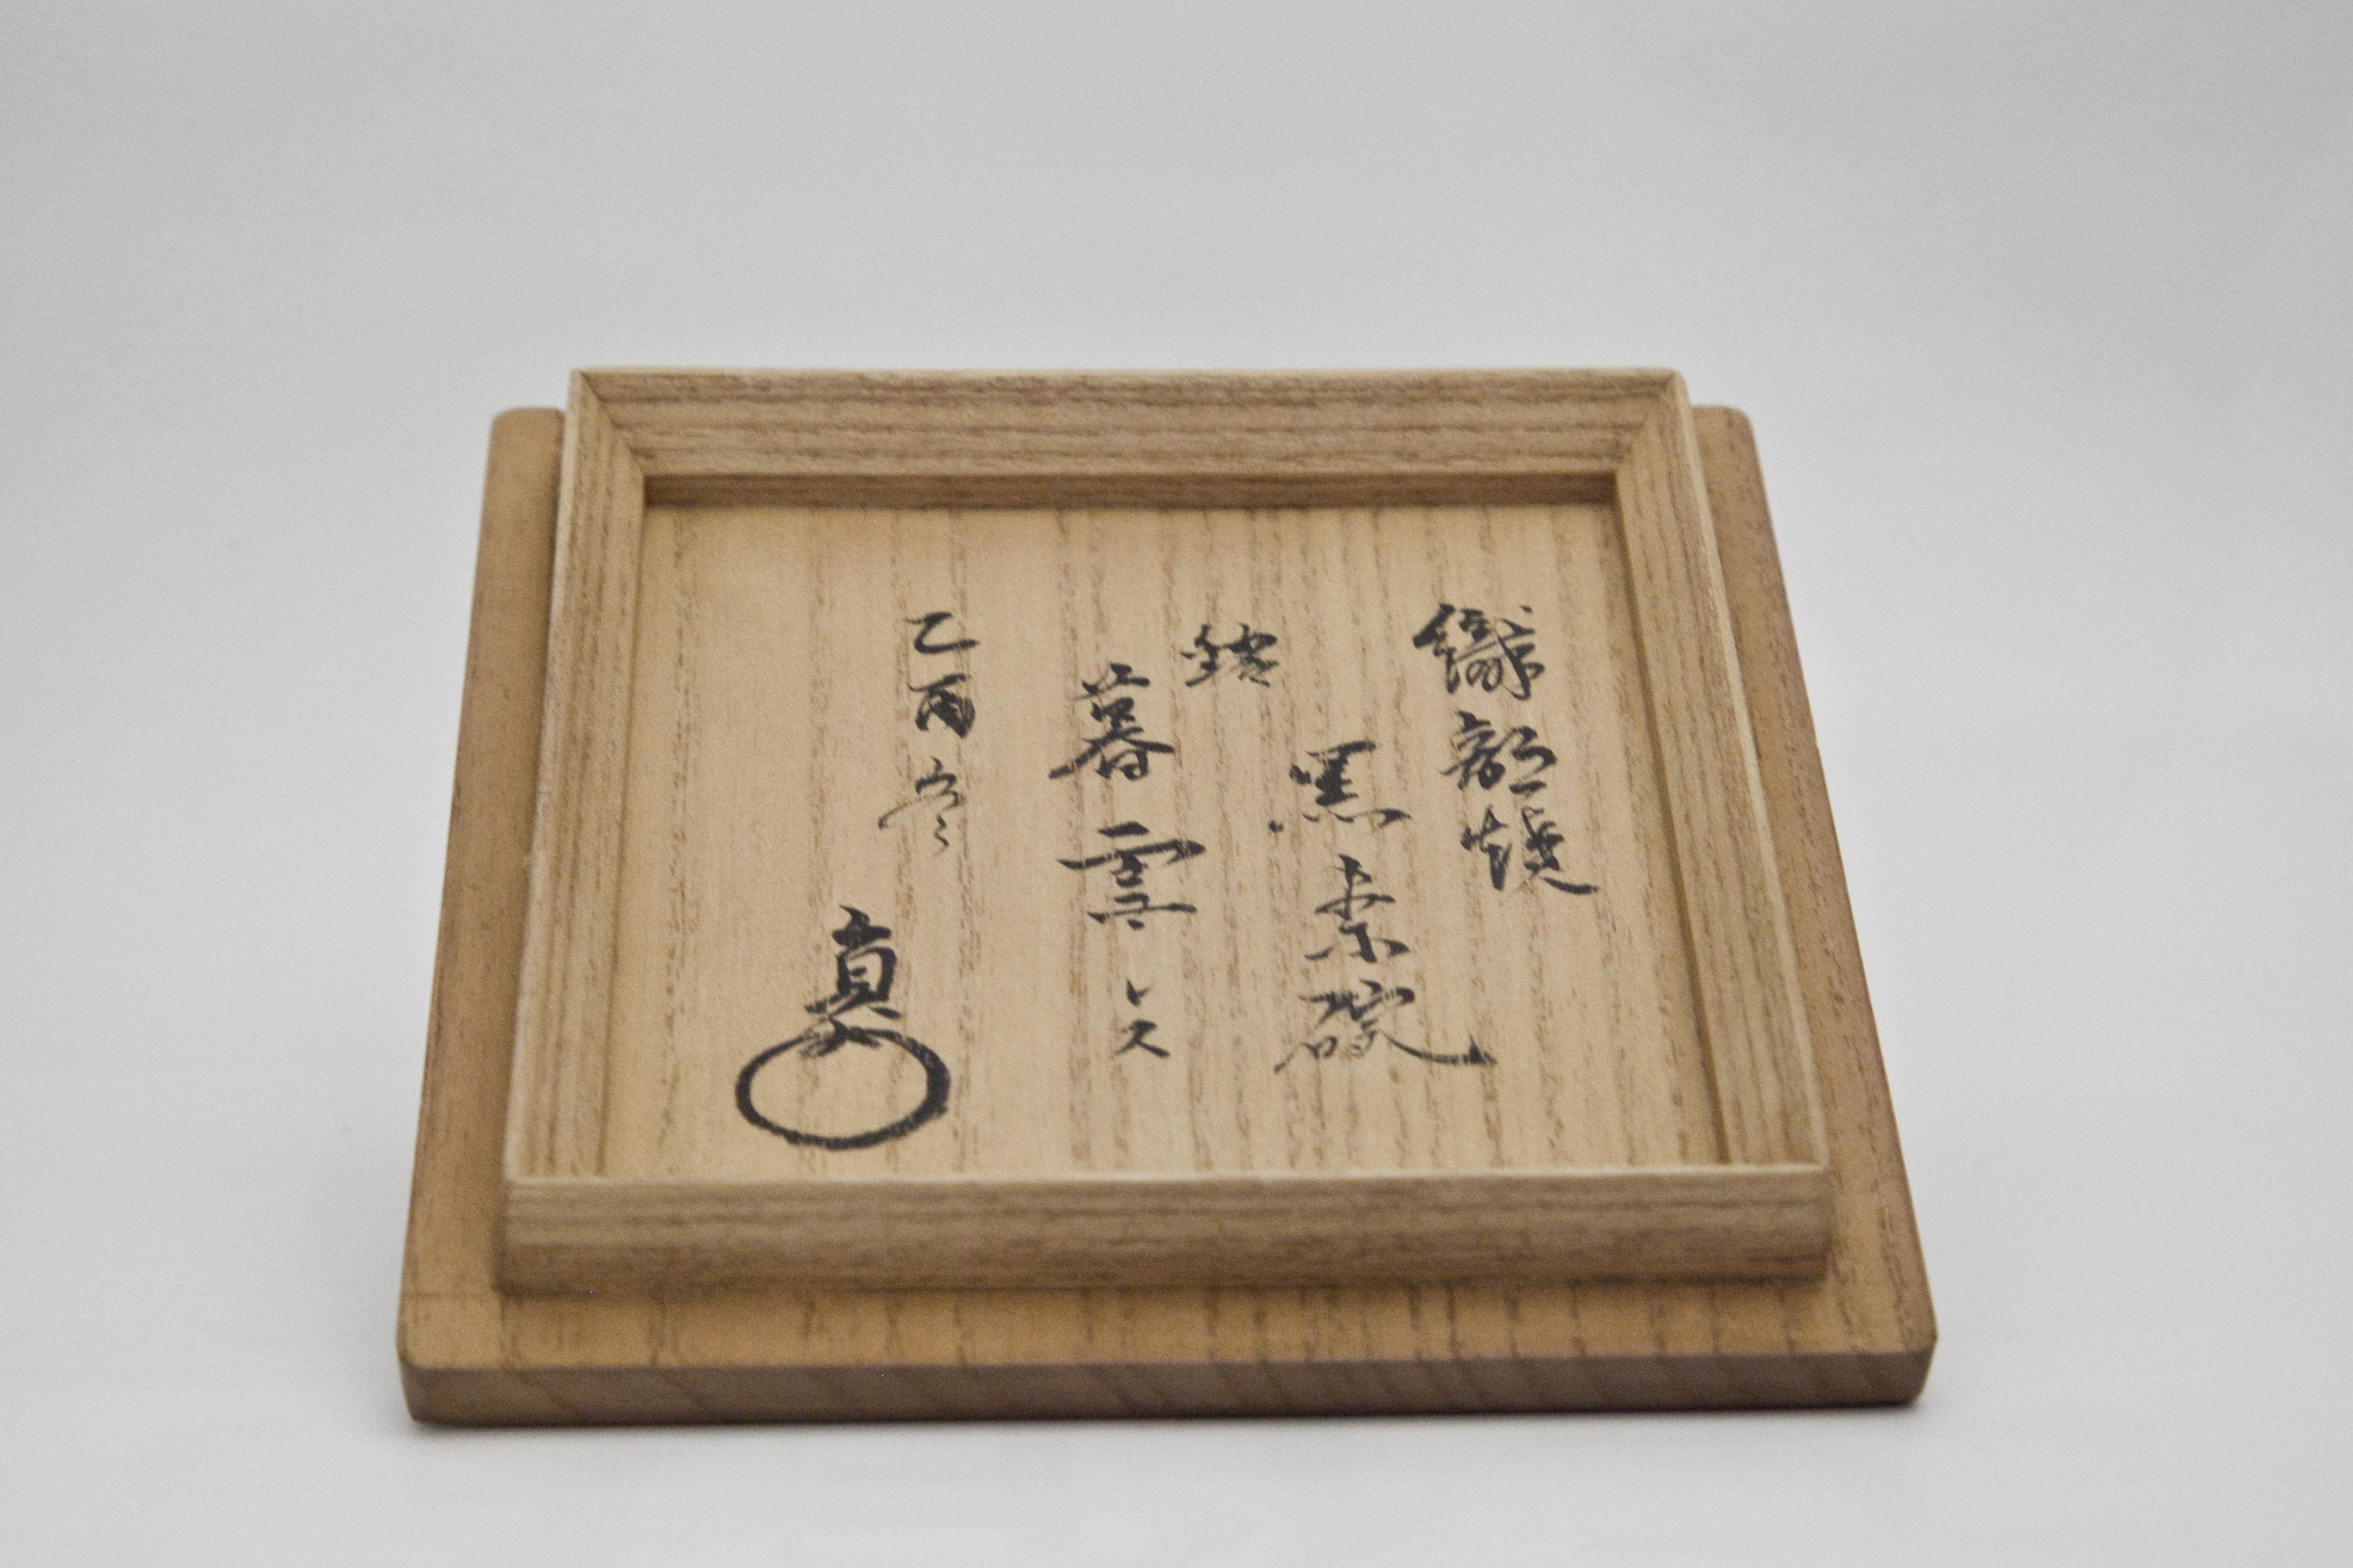 織部焼
黒茶碗
銘
暮雲ト云
乙酉冬
真